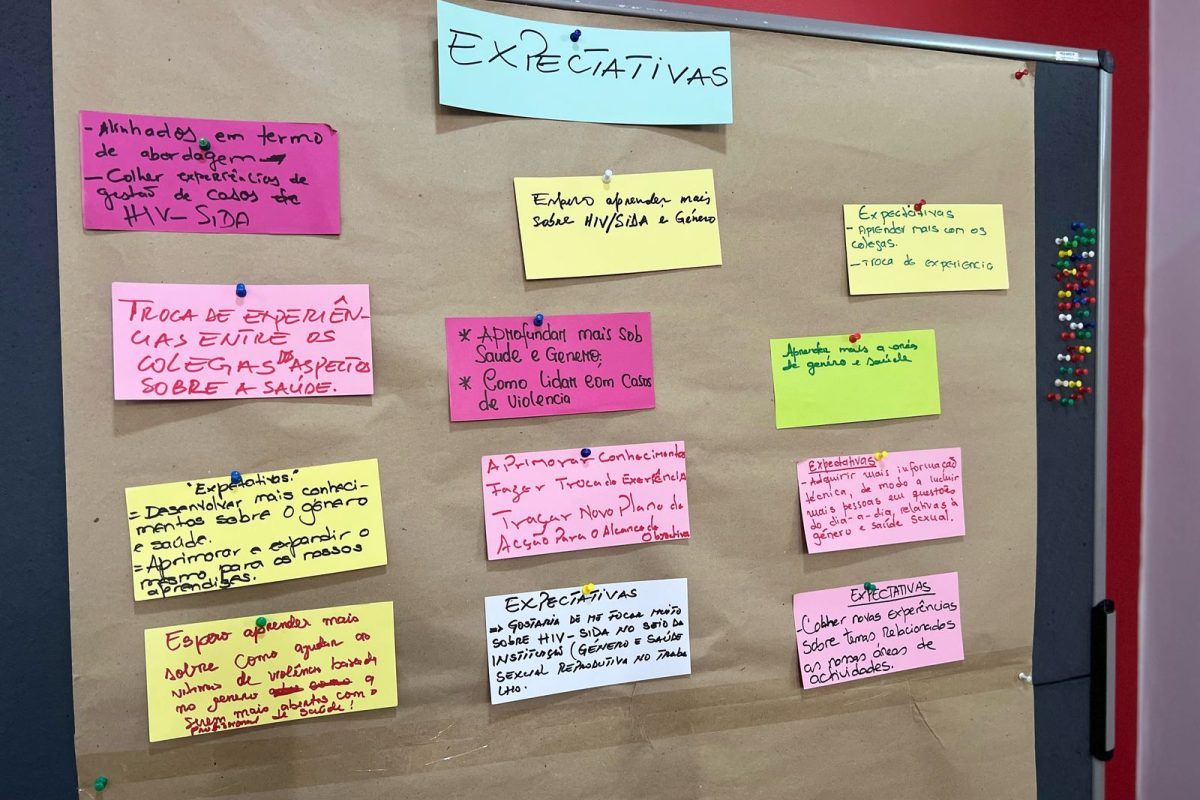 EXPECTATIVAS
- Alinhados em termo
de abordagem
- Colher experiências de
gestão de casos de
HIV-SIDA
Espero aprender mais
sobre HIV/SIDA e Género
Expectativas
- Aprender mais com os
colegas.
- Troca de experiencia
TROCA DE EXPERIÊN-
CIAS ENTRE OS
COLEGAS DOS ASPECTOS
SOBRE A SAÚDE.
* Aprofundar mais sob
Saude e Genero;
* Como lidar com Casos
de Violencia
Aprender mais a
de genéro e saúde
"Expetativos."
= Desenvolver mais conheci-
mentos sobre o género
e saúde.
= Aprimorar e expandir o
mesmo para os nossos
aprendises.
Aprimorar Conhecimentos
Fazer Troca de
Traçar Novo Plano de
Acção Para o Alcance do
Objectivo
Expectativas
- Adquirir mais informação
técnica, de modo a incluir
mais pessoas em questões
do dia-a-dia, relativas à
género e saúde sexual.
Espero aprender mais
sobre como ajudar as
vitimas de violência baseada
no genero a
serem mais abertas com o
profissional de saúde!
EXPECTATIVAS
=> GOSTARIA DE ME FOCAR MUITO
SOBRE HIV-SIDA NO SEIO DA
INSTITUIÇÃO (GÉNERO E SAÚDE
SEXUAL REPRODUTIVA NO TRABA
LHO.
EXPECTATIVAS
- Colher novas experiências
sobre temas Relacionados
as nossas áreas de
actividades.